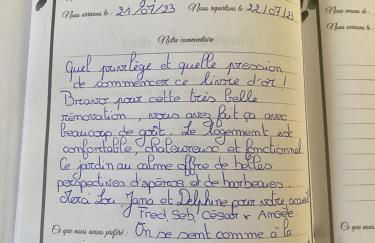 Nous arrivons le : 21/07/23 Nous repartons le : 22/07/23
Notre commentaire
Quel privilège et quelle pression
de commencer ce livre d'or !
Bravo pour cette très belle
rénovation, vous avez fait ça avec
beaucoup de goût. Le logement est
confortable, chaleureux et fonctionnel
Ce jardin au calme offre de belles
perspectives d'apéros et de barbecues.
Merci Lou, Jama et Delphine pour votre accueil
Fred, Seb, César & Amsée
Ce que nous avons préféré : On se sent comme à la
Nous venons de :
Nous arrivons le :